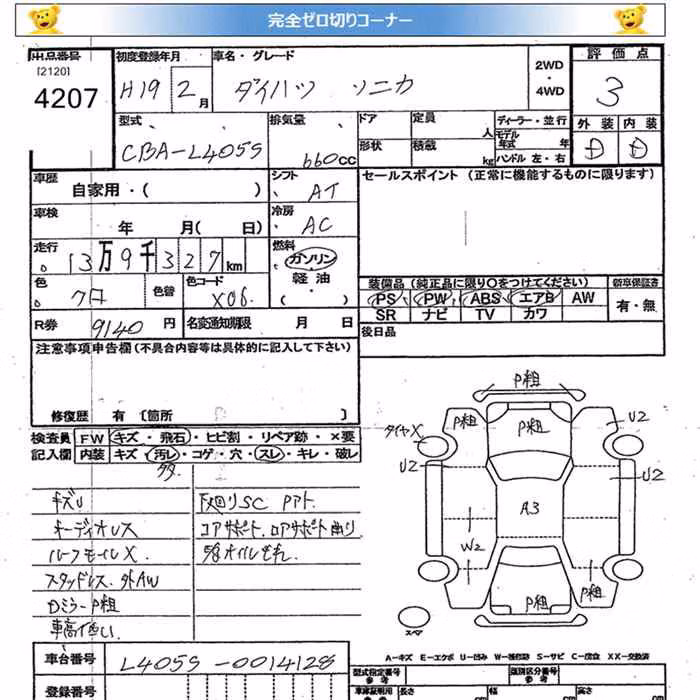 完全ゼロ切りコーナー
出品番号 [2120] 4207
初度登録年月 H19 2月
車名・グレード ダイハツ ソニカ
2WD・4WD
評価点 3
型式 CBA-L405S
排気量 660cc
ドア 形状
定員 人 積載 kg
ディーラー・並行
モデル年式 年
ハンドル 左・右
外装 D 内装 D
車歴 自家用・( )
シフト AT
セールスポイント (正常に機能するものに限ります)
車検 年 月( 日)
冷房 AC
走行 13万9千327km
燃料 ガソリン 軽油 ( )
色 クロ 色替 色コード X06
装備品 (純正品に限り○をつけてください) 新車保証書
PS PW ABS エアB AW 有・無
SR ナビ TV カワ
R券 9140円 名変通知期限 月 日
後日品
注意事項申告欄 (不具合内容等は具体的に記入して下さい)
修復歴 有 [箇所 ]
検査員記入欄 FW キズ・飛石・ヒビ割・リペア跡・×要
内装 キズ・汚レ・コゲ・穴・スレ・キレ・破レ
多
キズU
オーディオレス
ルーフモールX
スタッドレス.外AW
Dミラー P粗
車高低い
下廻りSC Pアト
コアサポート.ロアサポート曲り
P粗
P粗 P粗 U2
タイヤX
U2 U2
A3
W2
P粗
P粗
スペア
A-キズ E-エクボ U-凹み W-補修跡 S-サビ C-腐食 XX-交換済
車台番号 L405S-0014128
登録番号
型式指定番号 参考 類別区分番号 参考
車庫証明用 参考 長さ cm 幅 cm 高さ cm